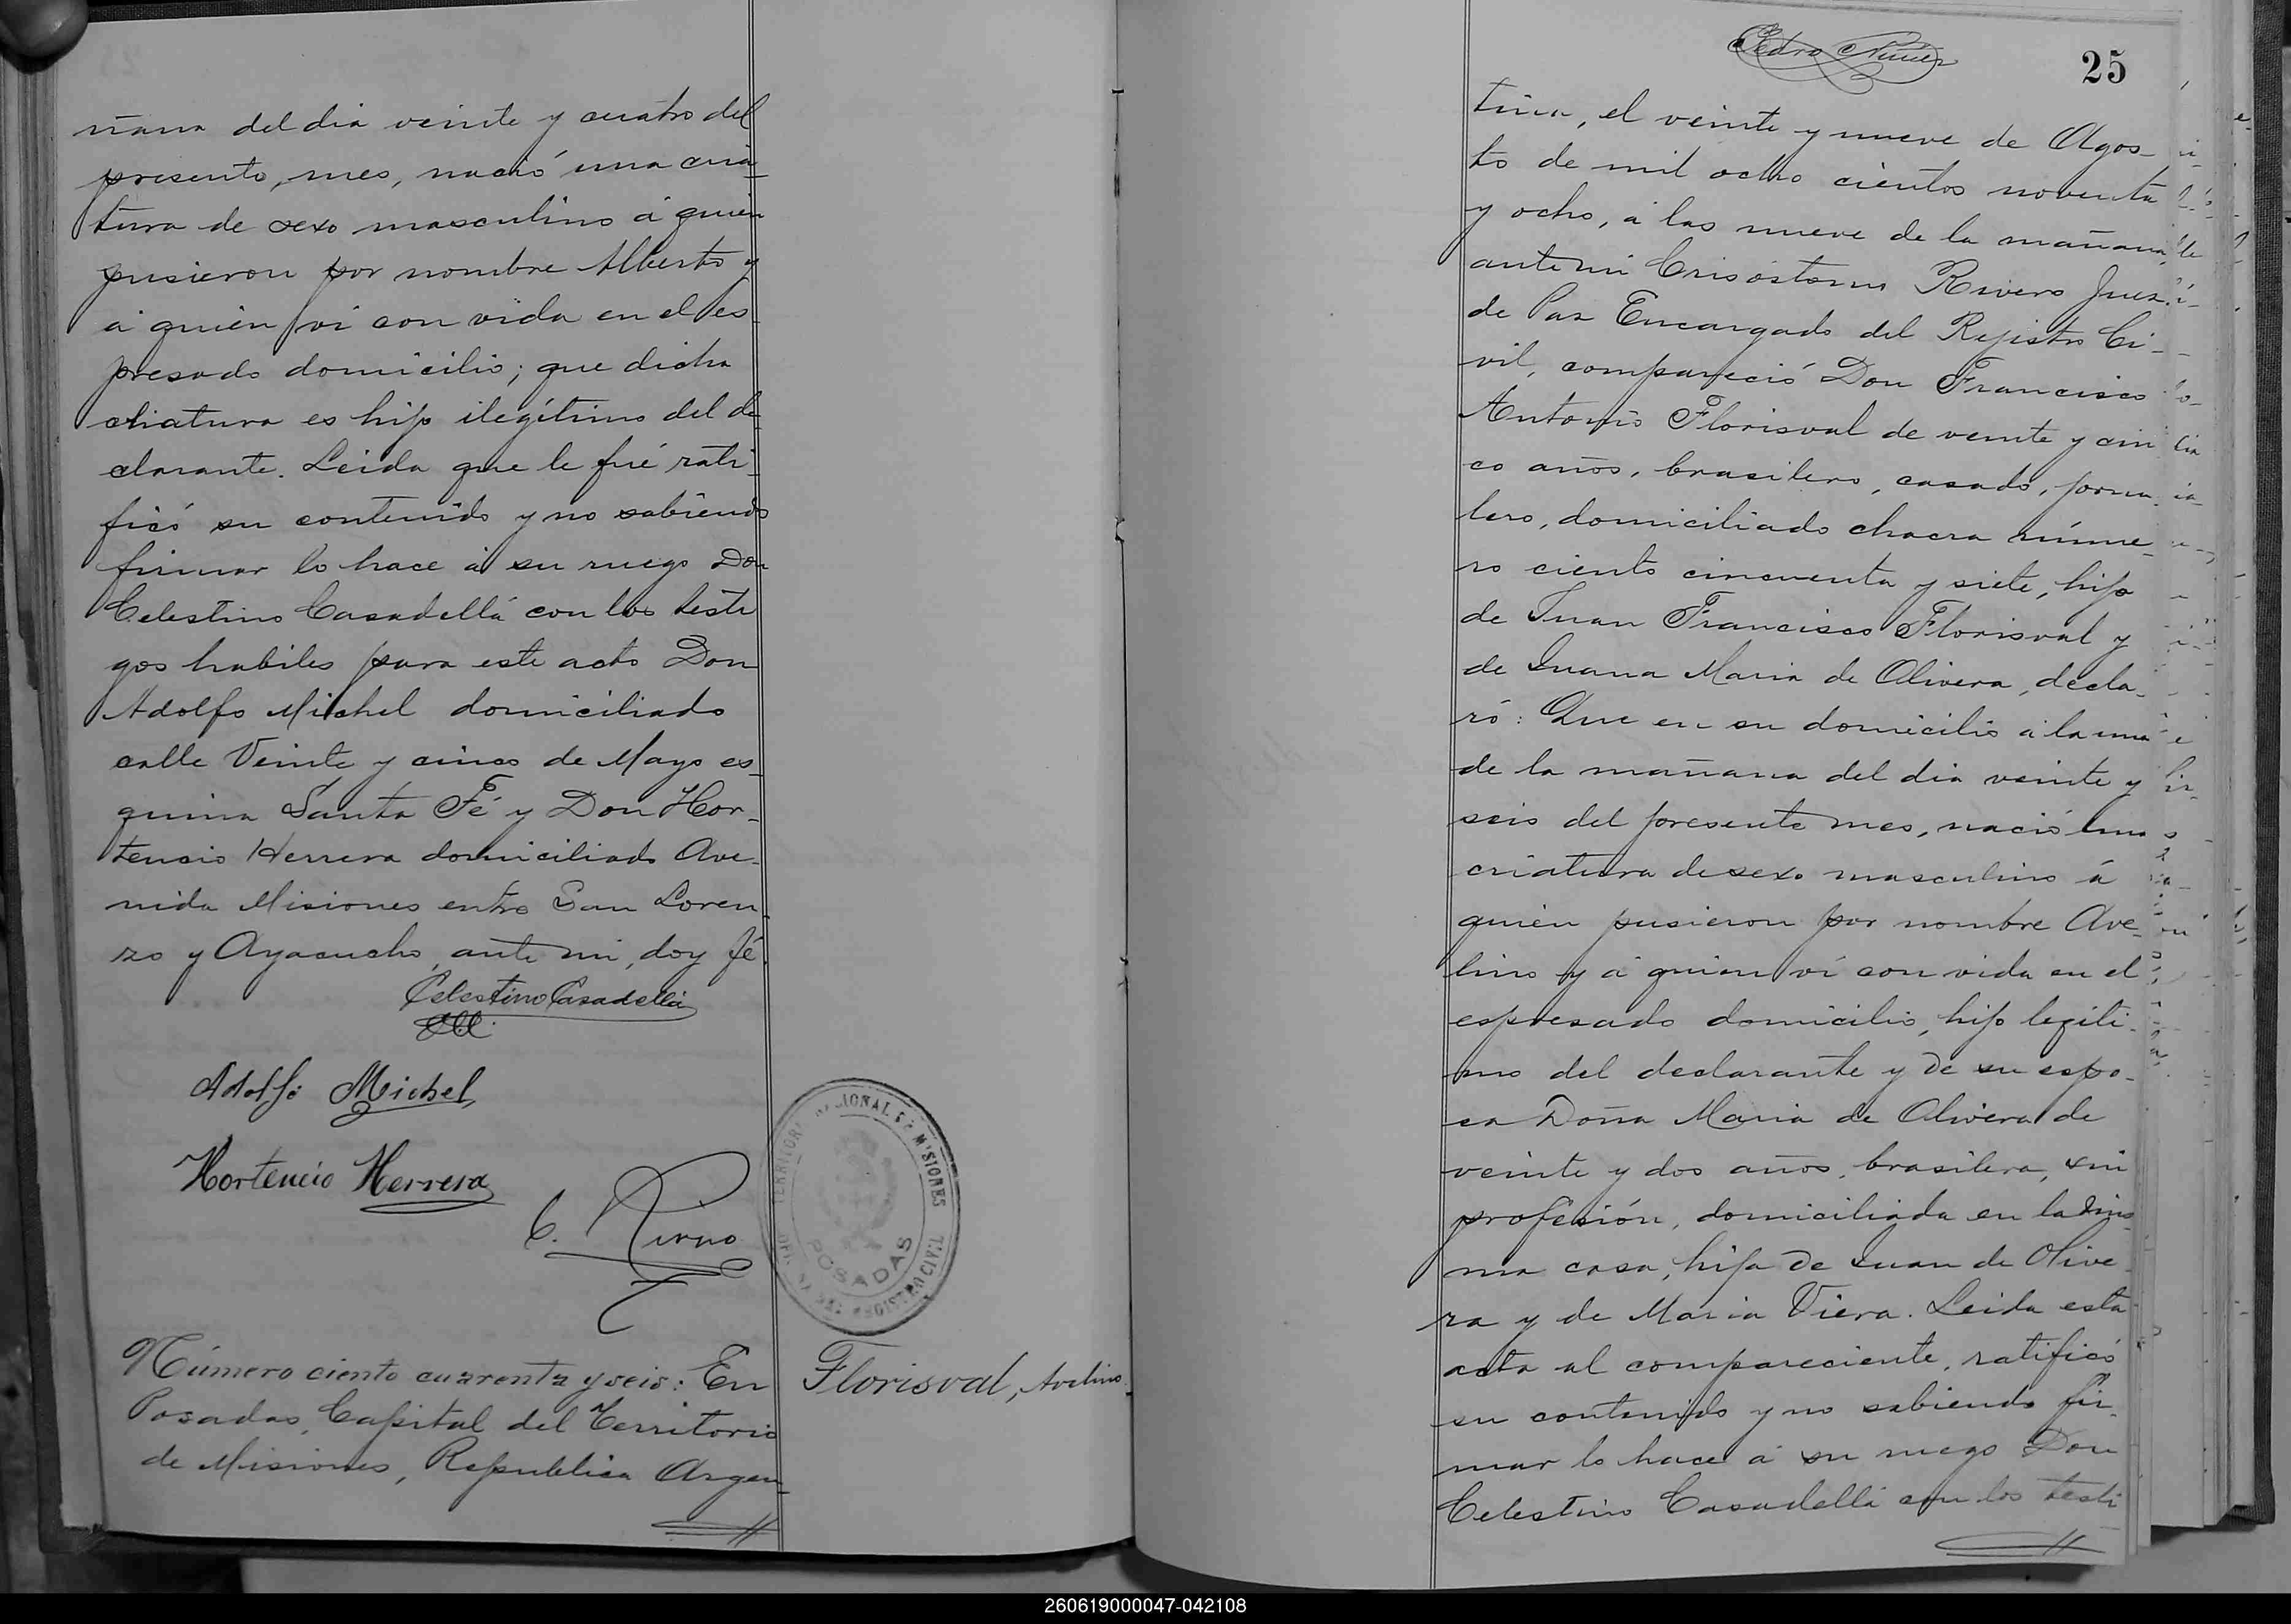 ñana del dia veinte y cuatro del
presente, mes, nació una cria-
tura de sexo masculino á quien
pusieron por nombre Alberto y
á quien vi con vida en el es-
presado domicilio; que dicha
criatura es hijo ilegítimo del de-
clarante. Leida que le fué rati-
ficó su contenido y no sabiendo
firmar lo hace á su ruego Don
Celestino Casadellá con los testi
gos habiles para este acto Don
Adolfo Michel domiciliado
calle Veinte y cinco de Mayo es-
quina Santa Fé y Don Hor-
tencio Herrera domiciliado Ave-
nida Misiones entre San Loren-
zo y Ayacucho, ante mi, doy fé.
Celestino Casadellá
Adolfo Michel
Hortencio Herrera
C. Rivero
TERRITORIO NACIONAL DE MISIONES
POSADAS
OFICINA DEL REGISTRO CIVIL
Número ciento cuarenta y seis: En
Posadas, Capital del Territorio
de Misiones, Republica Argen-
Florisval, Avelino.
Pedro Nuñez
25
tina, el veinte y nueve de Agos-
to de mil ocho cientos noventa
y ocho, á las nueve de la mañana,
ante mi Crisóstomo Rivero Juez
de Paz Encargado del Rejistro Ci-
vil, compareció Don Francisco
Antonio Florisval de veinte y cin
co años, brasilero, casado, jorna-
lero, domiciliado chacra núme-
ro ciento cincuenta y siete, hijo
de Juan Francisco Florisval y
de Juana Maria de Olivera, decla-
ró: Que en su domicilio á la una
de la mañana del dia veinte y
seis del presente mes, nació una
criatura de sexo masculino á
quien pusieron por nombre Ave-
lino y á quien vi con vida en el
espresado domicilio, hijo legíti-
mo del declarante y de su espo-
sa Doña Maria de Olivera de
veinte y dos años, brasilera, sin
profesión, domiciliada en la mis-
ma casa, hija de Juan de Olive-
ra y de Maria Viera. Leida esta
acta al compareciente, ratificó
su contenido y no sabiendo fir-
mar lo hace á su ruego Don
Celestino Casadellá con los testi-
260619000047-042108